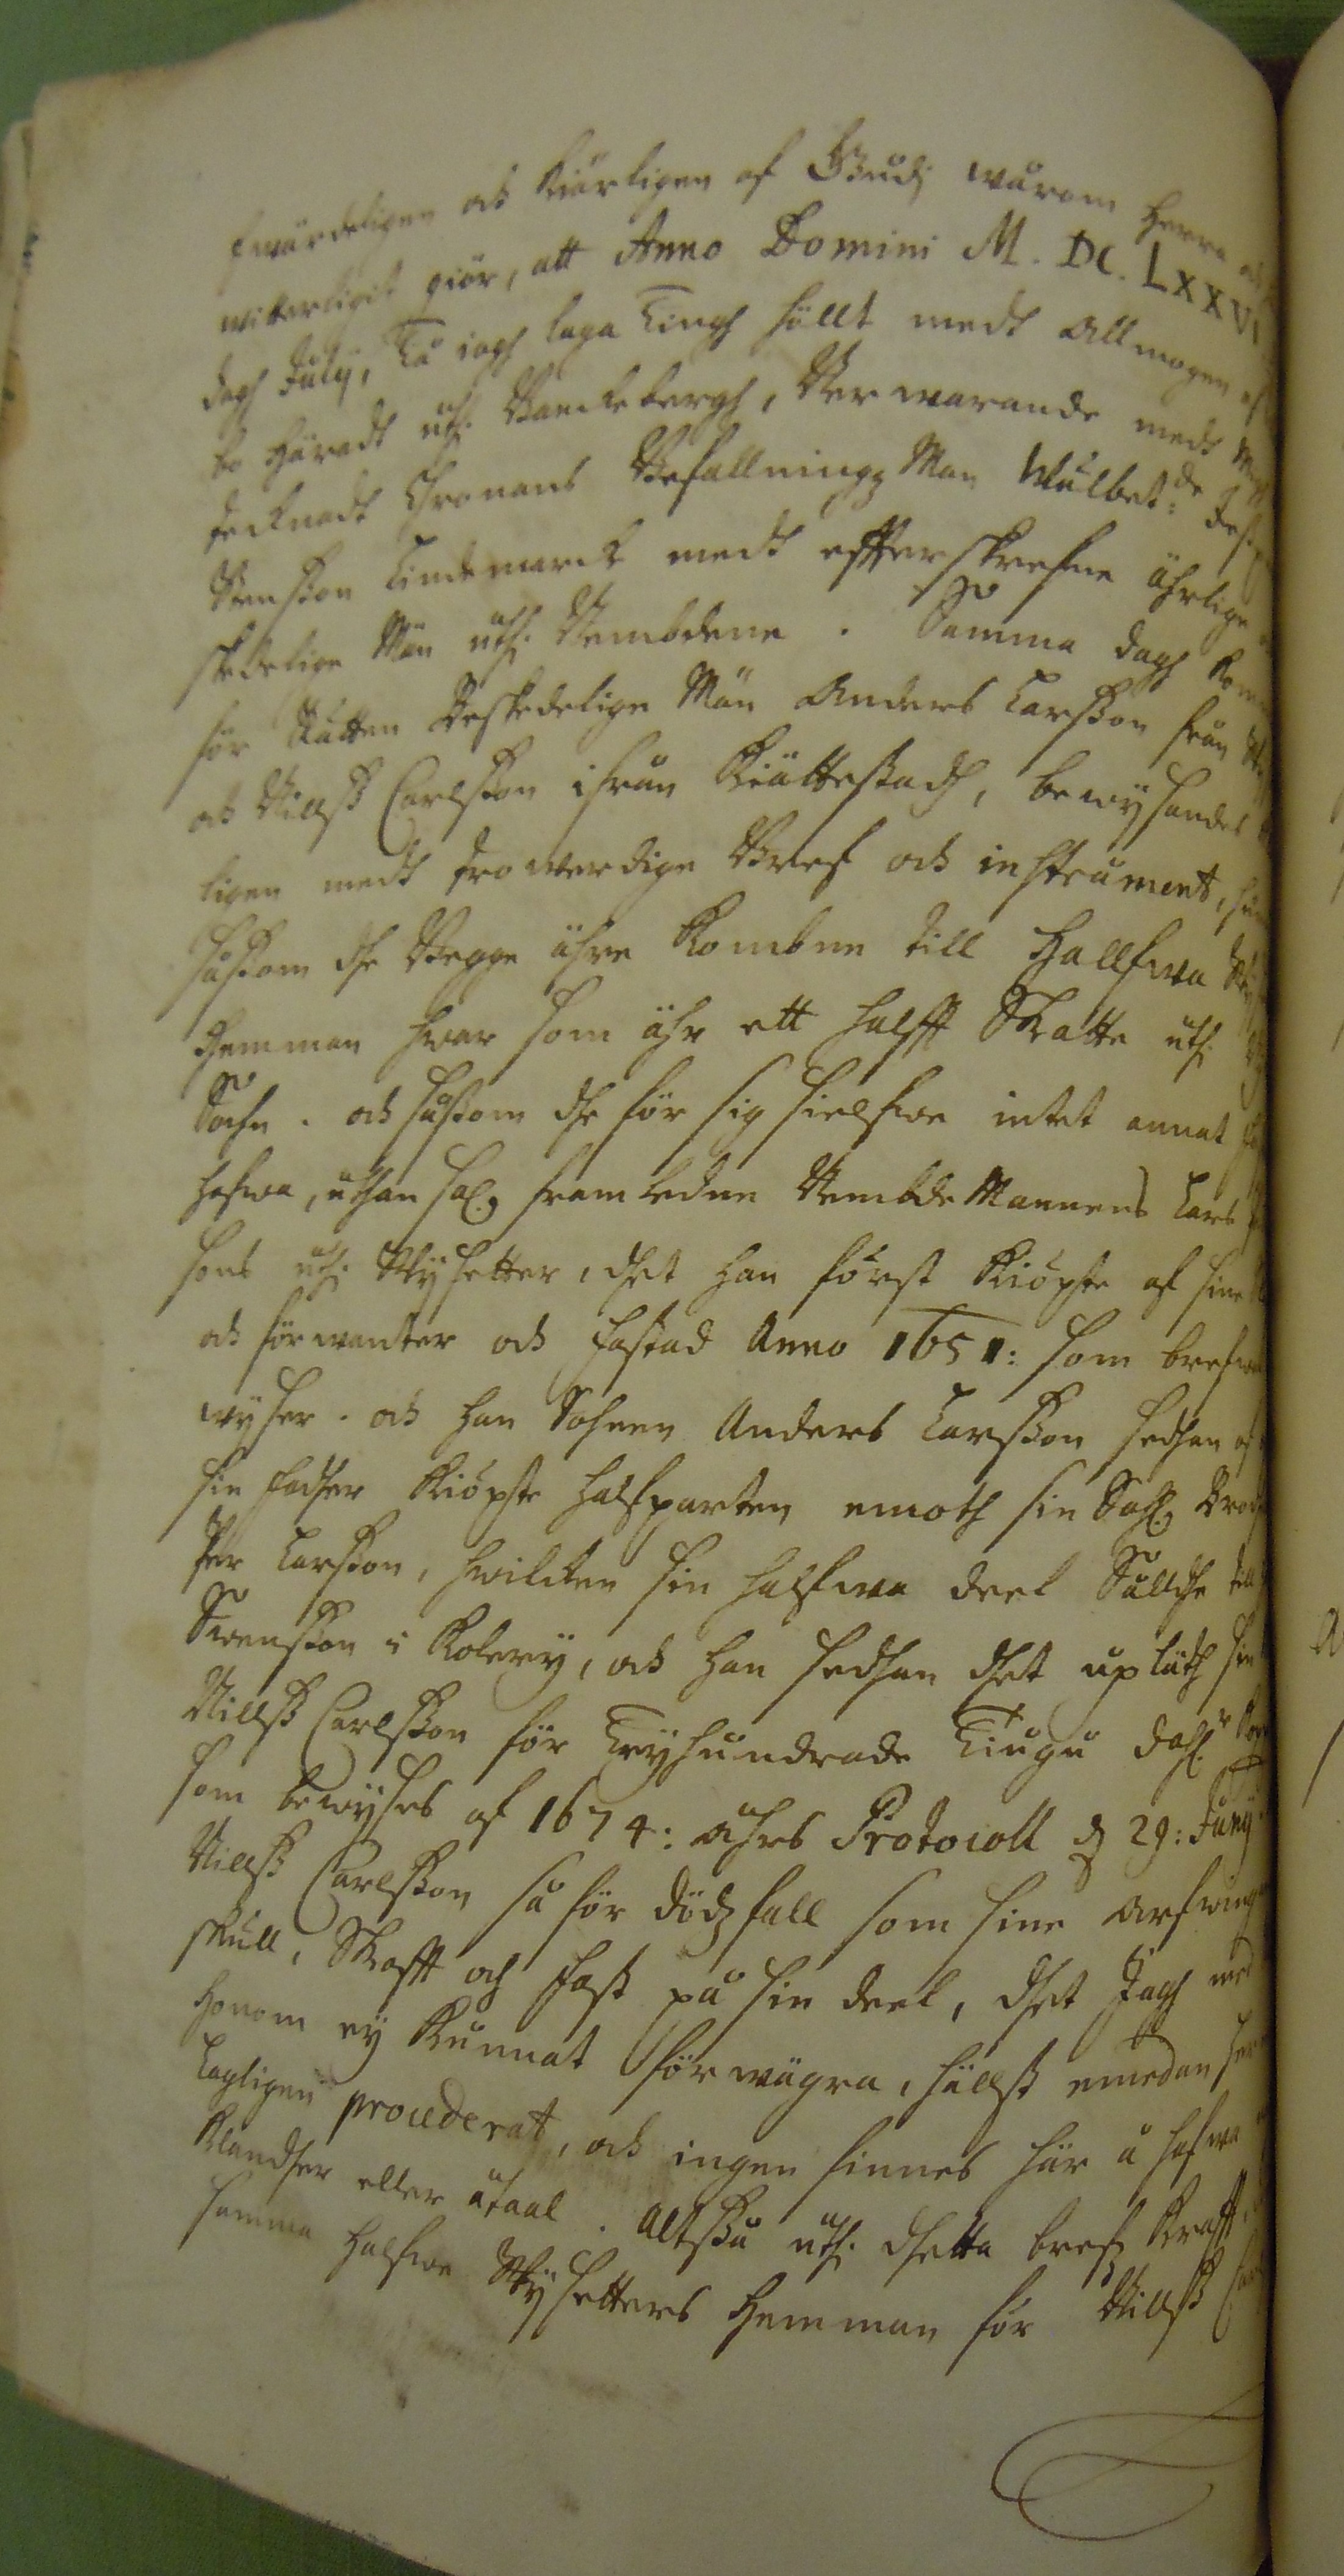 och Kiärligen af Gudj wårom Herra
witterligit giör, att Anno Domini M. DC. LXXV
dagh Julij, Tå iagh laga Tingh höllt medh Allmogen
bo Häradt uthj Banckebergh, När warande medh
Chronans Befallningz Man Wälbet:de
Lindemarck medh effterskrefne ährlige
skedelige Män uthj Nembdene. Samma dagh
för Rätten Beskedelige Män Anders Larsson från
och Nilss Carlsson ifrån Kiättestadh, bewysandes
ligen medh trowerdige Bref och instrument,
såssom dhe Begge ähre Kombne till Hallfwa
Hemman hwar som ähr ett halfft Skatte uthj
Sochn. och såssom dhe för sig sielfwe intet annat
hafwa, uthan Sal. framledne Nembde Mannens Lars
sons uthj Rysetter, dhet han först Kiöpte af sine
och förwanter och fastad Anno 1651: som brefwen
wyser. och han Sohnen Anders Larsson sedhan af
sin fadher Kiöpte halfparten emoth sin Sahl. Brod
Per Larsson, hwilcken sin halfwa deel Såldhe till
Swensson i Kolery, och han sedhan dhet uplåth sin
Nilss Carlsson för Tryhundrade Tiugu dahl.r
som bewyses af 1674: åhrs Protocoll d 29: Junij
Nilss Carlsson så för dödzfall som sine arfwing
skull, Skafft och fast på sin deel, dhet Jagh med
honom ey Kunnat förwägra, hällst emedan
Lagligen procederat, och ingen finnes här å hafwa
Klandher eller åtaal. Altsså uthj dhetta brefz Krafft,
samma halfwe Rysetters Hemman för Nilss